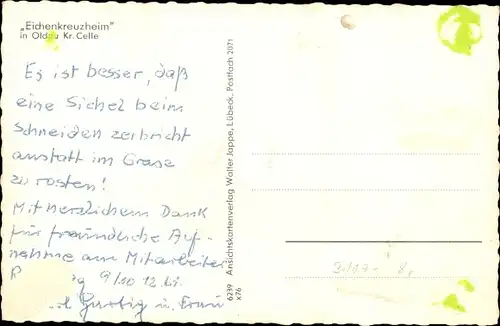 „Eichenkreuzheim"
in Oldau Kr. Celle
Es ist besser, daß
eine Sichel beim
Schneiden zerbricht
anstatt im Grase
zu rosten!
Mit herzlichem Dank
für freundliche Auf-
nahme am Mitarbeiter
9/10 12.
u. Frau
6239 Ansichtskartenverlag Walter Jappe, Lübeck, Postfach 2071
x76